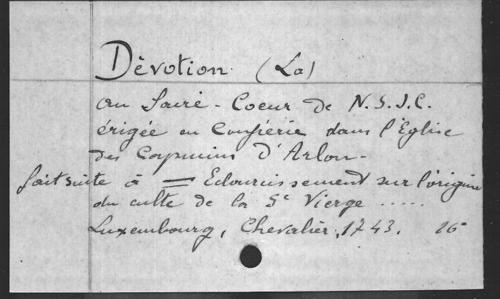 Dévotion (La)
au Sacré-Coeur de N.S.J.C.
érigée en Confrérie dans l'Eglise
des Capucins d'Arlon.
fait suite à = Eclaircissement sur l'origine
du culte de la Ste Vierge .....
Luxembourg, Chevalier, 1743. 16°